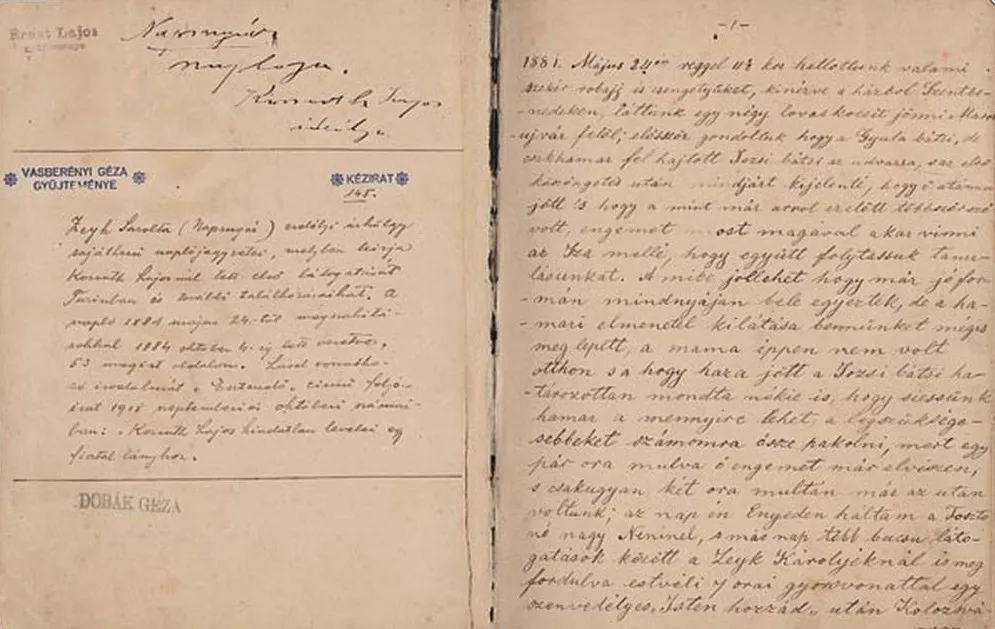 Ernst Lajos
Napsugár
naplója.
Kossuth Lajos
ideálja
VASBERÉNYI GÉZA
GYŰJTEMÉNYE
KÉZIRAT
145.
Zeyk Sarolta (Napsugár) erdélyi úrhölgy
sajátkezű naplójegyzetei, melyben leírja
Kossuth Lajosnál tett első látogatását
Turinban és további találkozásaikat. A
napló 1881 május 24.-től megszakítá-
sokkal 1884 október 4.-ig lett vezetve,
53 megírt oldalon. Lásd vonatko-
zó irodalmát „Esztendő" című folyó-
irat 1918 szeptemberi és októberi számai-
ban: Kossuth Lajos kiadatlan levelei egy
fiatal lányhoz.
DOBÁK GÉZA
-1-
1881. Május 24én reggel kor hallottunk valami
szekér robajt is csengetyüket, kinézve a házbol Szentbe-
nedeken, láttunk egy négy lovas kocsit jönni Maros
ujvár felöl; elöször gondoltuk hogy a Gyula bátsi, de
csakhamar fel hajtott Jozsi bátsi az udvarra, s az elsö
köszöngetés után mindjárt kijelenté, hogy ö utánam
jött is hogy a mint már arrol ezelött többször szó
volt, engemet most magával akar vinni
az Iza mellé, hogy együtt folytessuk tanu-
lásunkat. A mibe jóllehet hogy már jó for-
mán mindnyájan bele egyeztek, de a ha-
mari elmenetel kilátása bennünket mégis
meg lepett, a mama éppen nem volt
otthon s a hogy haza jött a Jozsi bátsi ha-
tározottan mondta nékie is, hogy siessünk
hamar a mennyire lehet, a legszüksége-
sebbeket számomra össze pakolni, mert egy
pár ora mulva ö engemet már elviszen,
s csakugyan két ora multán már az uton
voltunk; az nap én Enyeden háltam a
né nagy Neninél, s más nap több bucsu láto-
gatások között a Zeyk Károlyéknál is meg
fordulva estvéli 7 orai gyorsvonattal egy
szenvedélyes „Isten hozzád" után Kolozsvá-